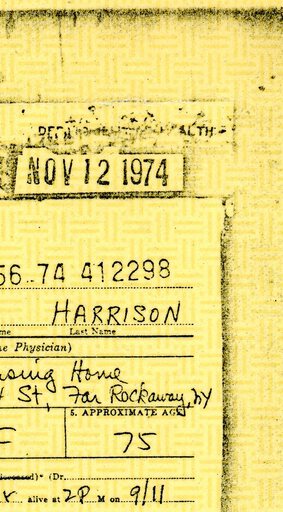 NOV 12 1974
56-74 412298
HARRISON
Last Name
Physician)
Home
St, Far Rockaway, NY
5. APPROXIMATE AGE
F 75
(Dr.
alive at 2P M on 9/11